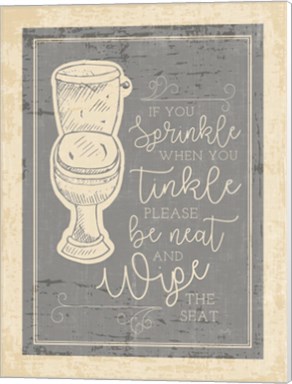 IF YOU
Sprinkle
WHEN YOU
tinkle
PLEASE
be neat
AND
Wipe
THE
SEAT